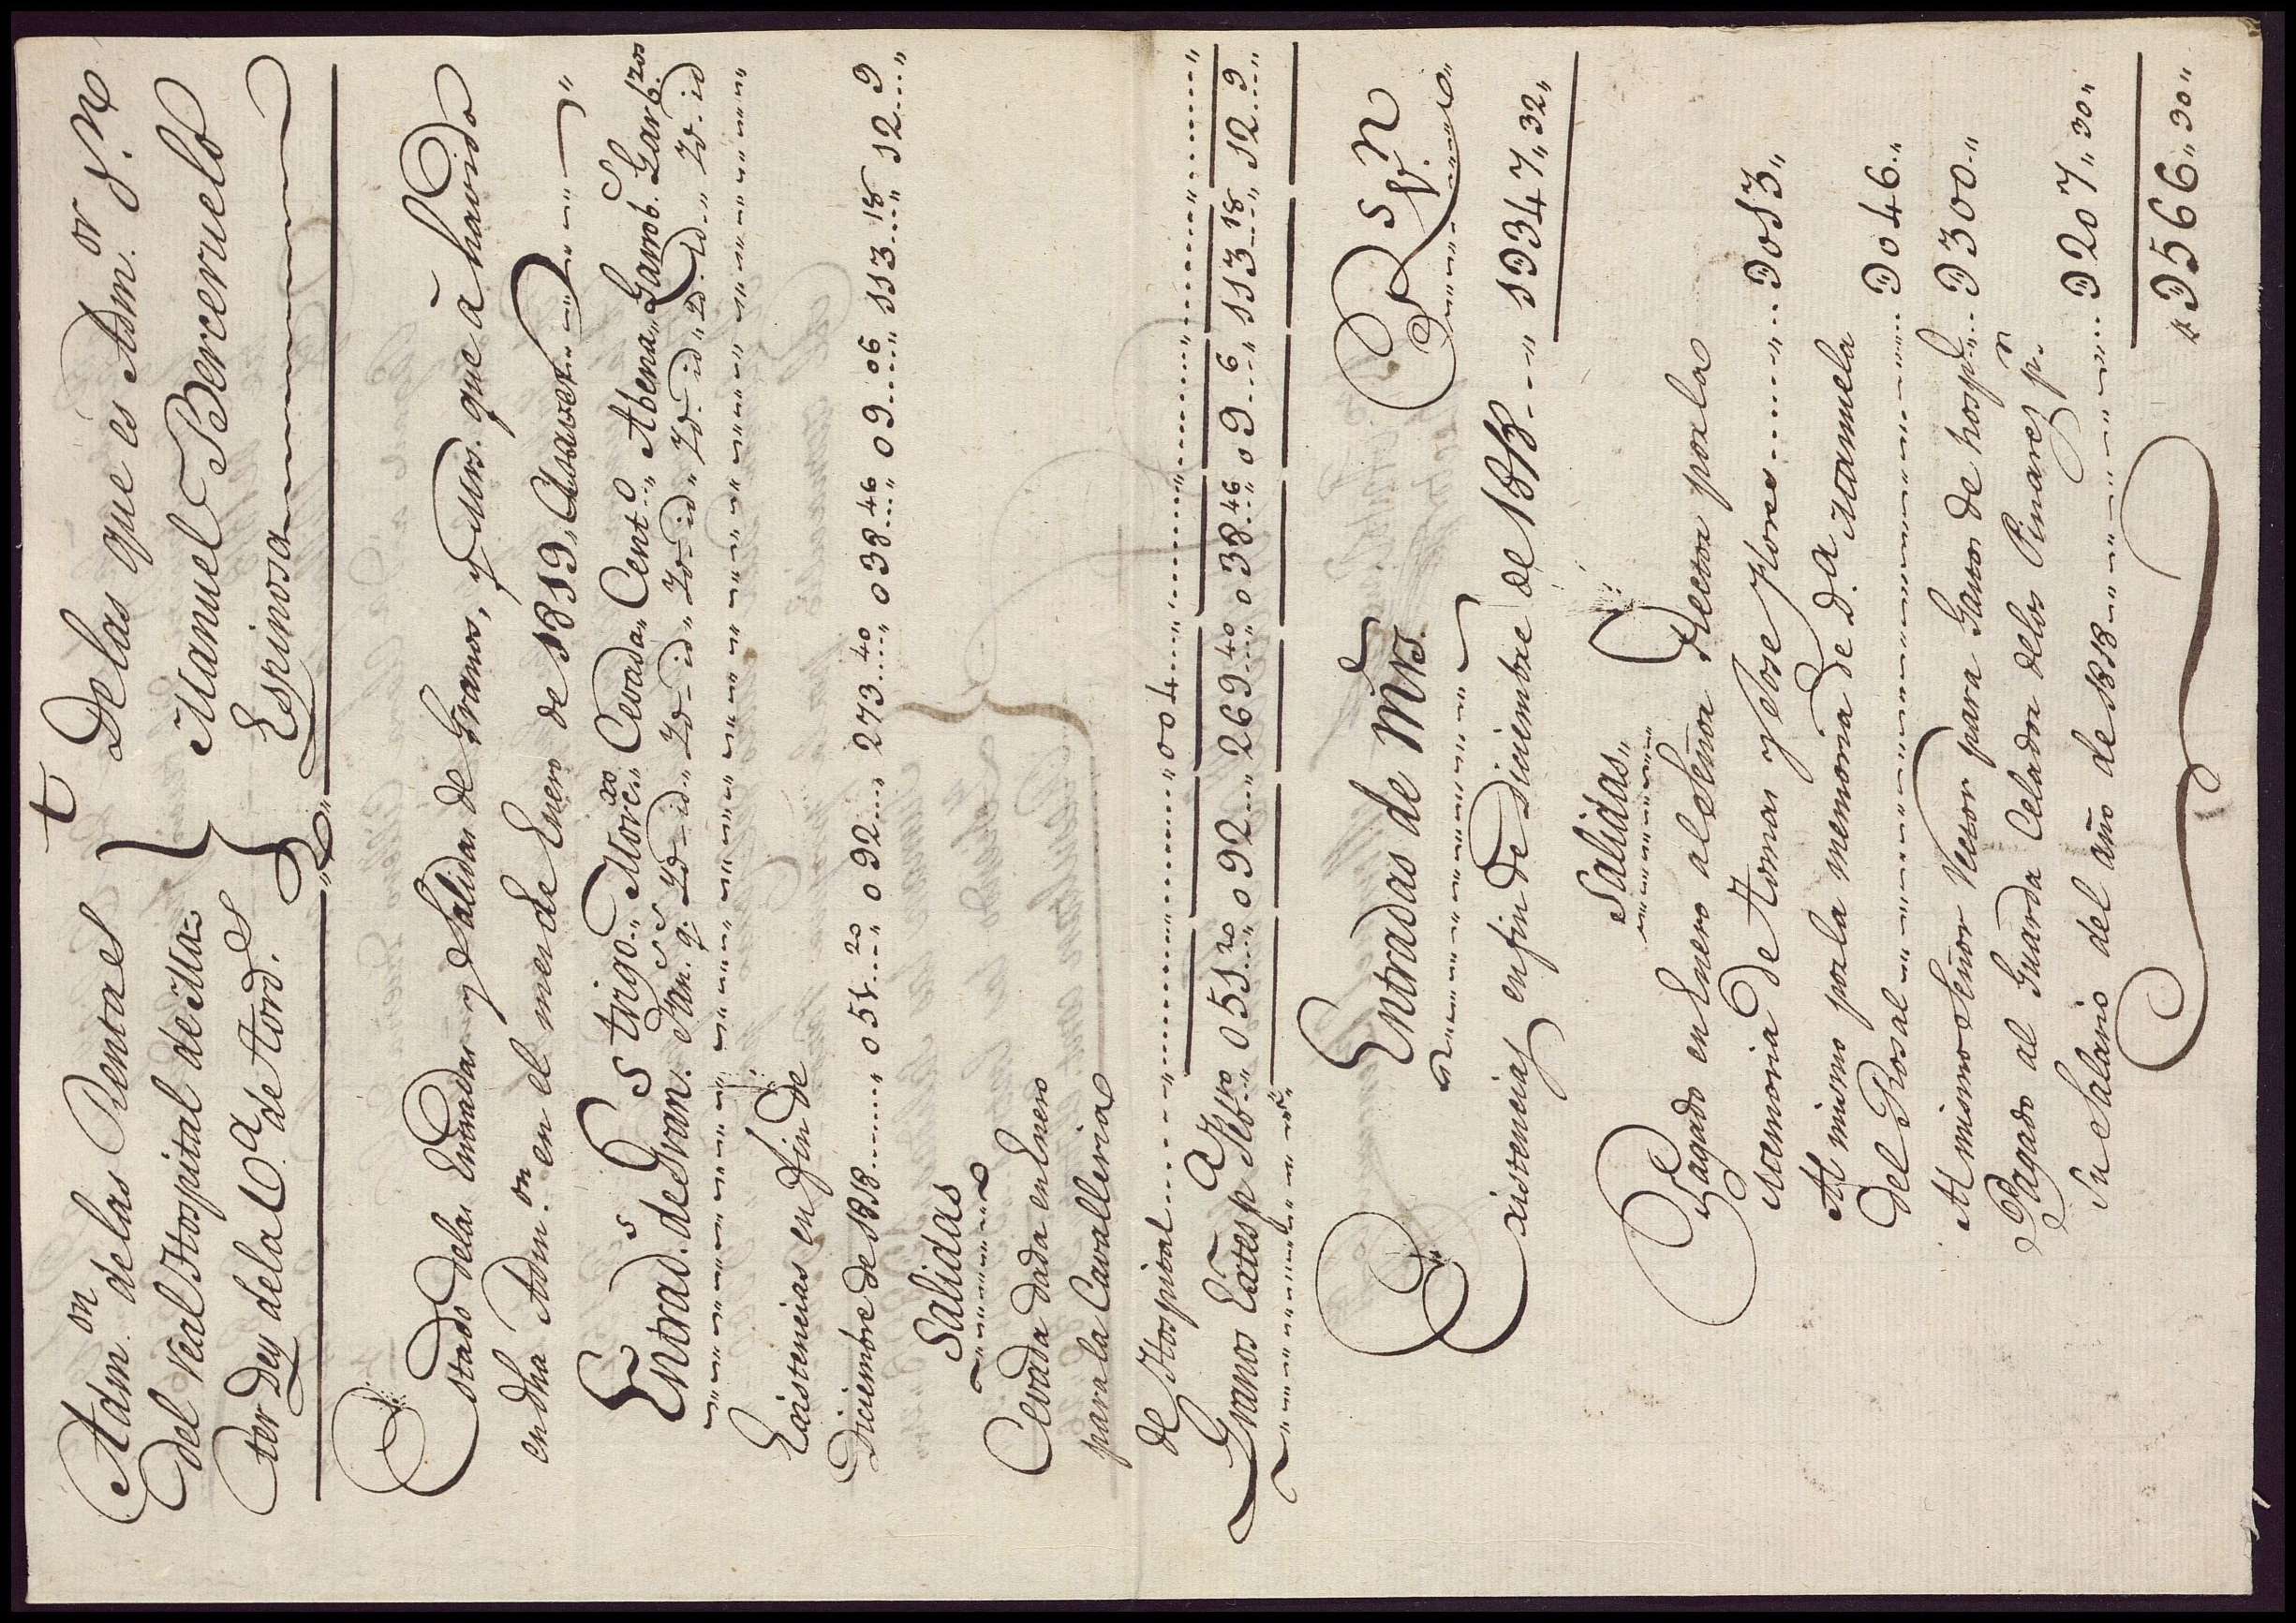 t
Adm.on delas Rentas
del Real Hospital de Ma=
ter Dey dela C.a de Tord.s
Delas que es Adm.or D.n
Manuel Berceruelo
Espinosa
Estado delas Entradas y Salidas de Granos, y Mrs. que à havido
en dha Adm.on en el mes de Enero de 1819, Asaver
Entrad.s de Gran.s trigo Morc.xo Cevada Cent.o Abena Garrob.s Garb.zos
Fan.s q.s Yd id Yd id Yd id Yd id Yd Yd id
Existencias en fin de
Diciembre de 1818 051..20 092.. 273..40 038..46 09..06 113..18 12..9
Salidas
Cevada dada en Enero
para la Cavalleria
de Hospital 004
Granos Extes 051..20 092.. 269..40 038..46 09..6 113..18 12..9
Entradas de Mrs. Rs Vn
Existencias en fin de Diciembre de 1818 1D347,,32,,
Salidas
Pagado en Enero al Señor Rector por la
memoria de Tomas y Jose Flores D013,,
Al mismo por la memoria de D.a Manuela
del Rosal D046,,
Al mismo Señor Rector para Gastos de hosp.l D300,,
Pagado al Guarda Celador delos Pinares p.r
su Salario del año de 1818 D207,,30,,
D566,,30,,